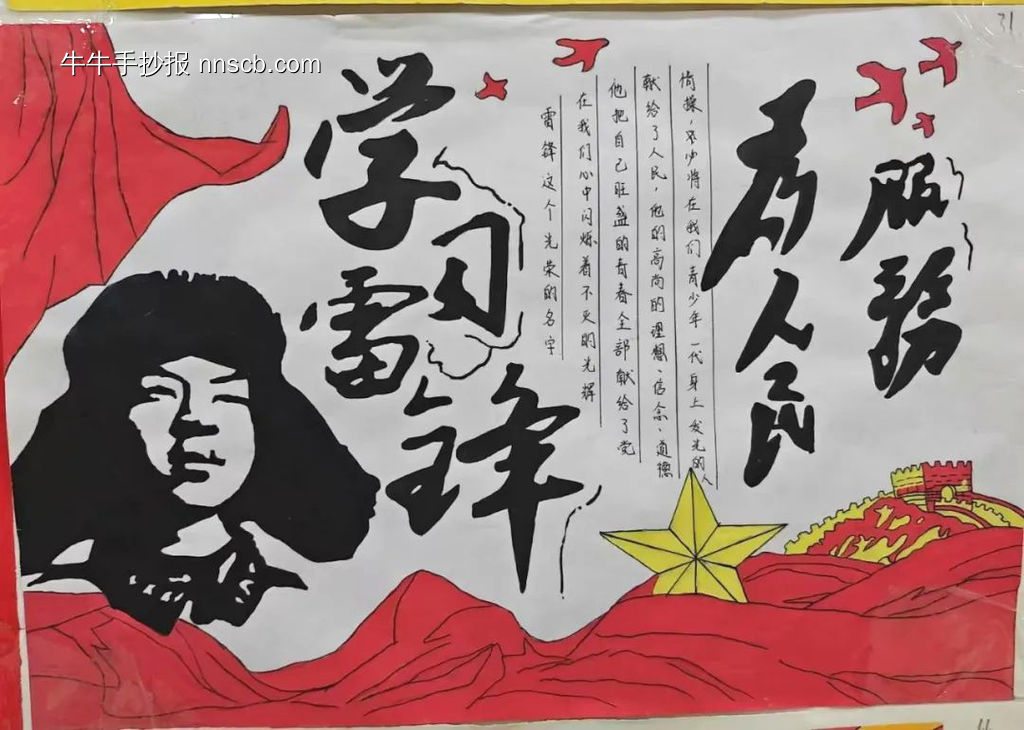 牛牛手抄报 nnscb.com
31
学习
雷锋
为人民
服務
雷锋这个光荣的名字
在我们心中闪烁着不灭的光辉
他把自己旺盛的青春全部献给了党
献给了人民，他的高尚的理想、信念、道德
情操，必将在我们青少年一代身上发光的人
11